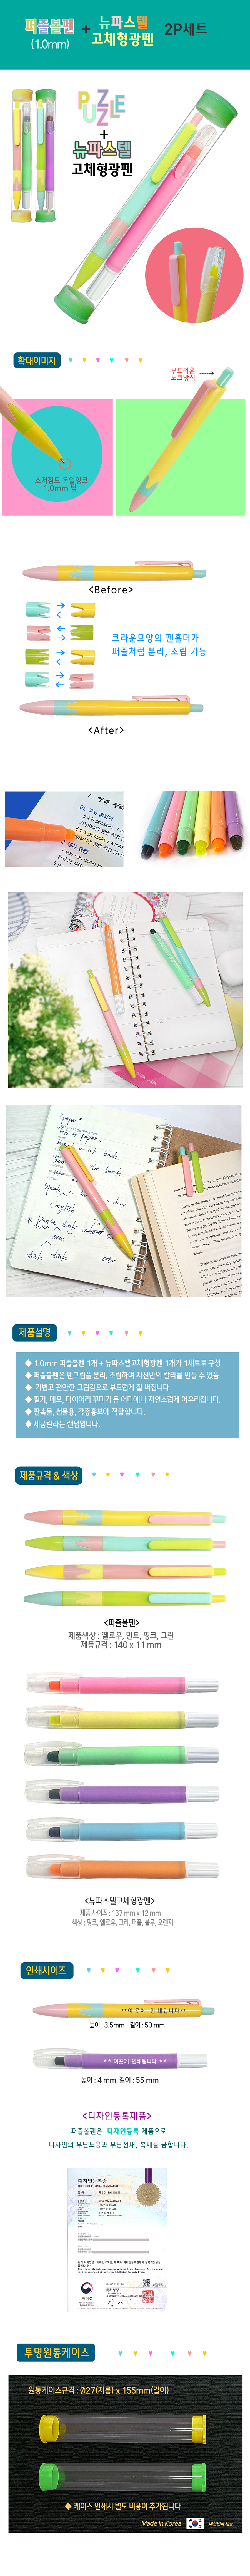 퍼즐볼펜
(1.0mm)
+
뉴파스텔
고체형광펜
2P세트
PUZZLE
+
뉴파스텔
고체형광펜
확대이미지
부드러운
노크방식
초저점도 독일잉크
1.0mm 팁
<Before>
크라운모양의 펜홀더가
퍼즐처럼 분리, 조립 가능
<After>
제품설명
◆ 1.0mm 퍼즐볼펜 1개 + 뉴파스텔고체형광펜 1개가 1세트로 구성
◆ 퍼즐볼펜은 펜그립을 분리, 조립하여 자신만의 칼라를 만들 수 있음
◆ 가볍고 편안한 그립감으로 부드럽게 잘 써집니다
◆ 필기, 메모, 다이어리 꾸미기 등 어디에나 자연스럽게 어우러집니다.
◆ 판촉물, 선물용, 각종홍보에 적합합니다.
◆ 제품칼라는 랜덤입니다.
제품규격 & 색상
<퍼즐볼펜>
제품색상 : 옐로우, 민트, 핑크, 그린
제품규격 : 140 x 11 mm
<뉴파스텔고체형광펜>
제품 사이즈 : 137 mm x 12 mm
색상 : 핑크, 옐로우, 그린, 퍼플, 블루, 오렌지
인쇄사이즈
**이곳에 인쇄됩니다**
높이 : 3.5mm 길이 : 50 mm
** 이곳에 인쇄됩니다 **
높이 : 4 mm 길이 : 55 mm
<디자인등록제품>
퍼즐볼펜은 디자인등록 제품으로
디자인의 무단도용과 무단전재, 복제를 금합니다.
디자인등록증
특허청
투명원통케이스
원통케이스규격 : Ø27(지름) x 155mm(길이)
◆ 케이스 인쇄시 별도 비용이 추가됩니다
Made in Korea
대한민국 제품